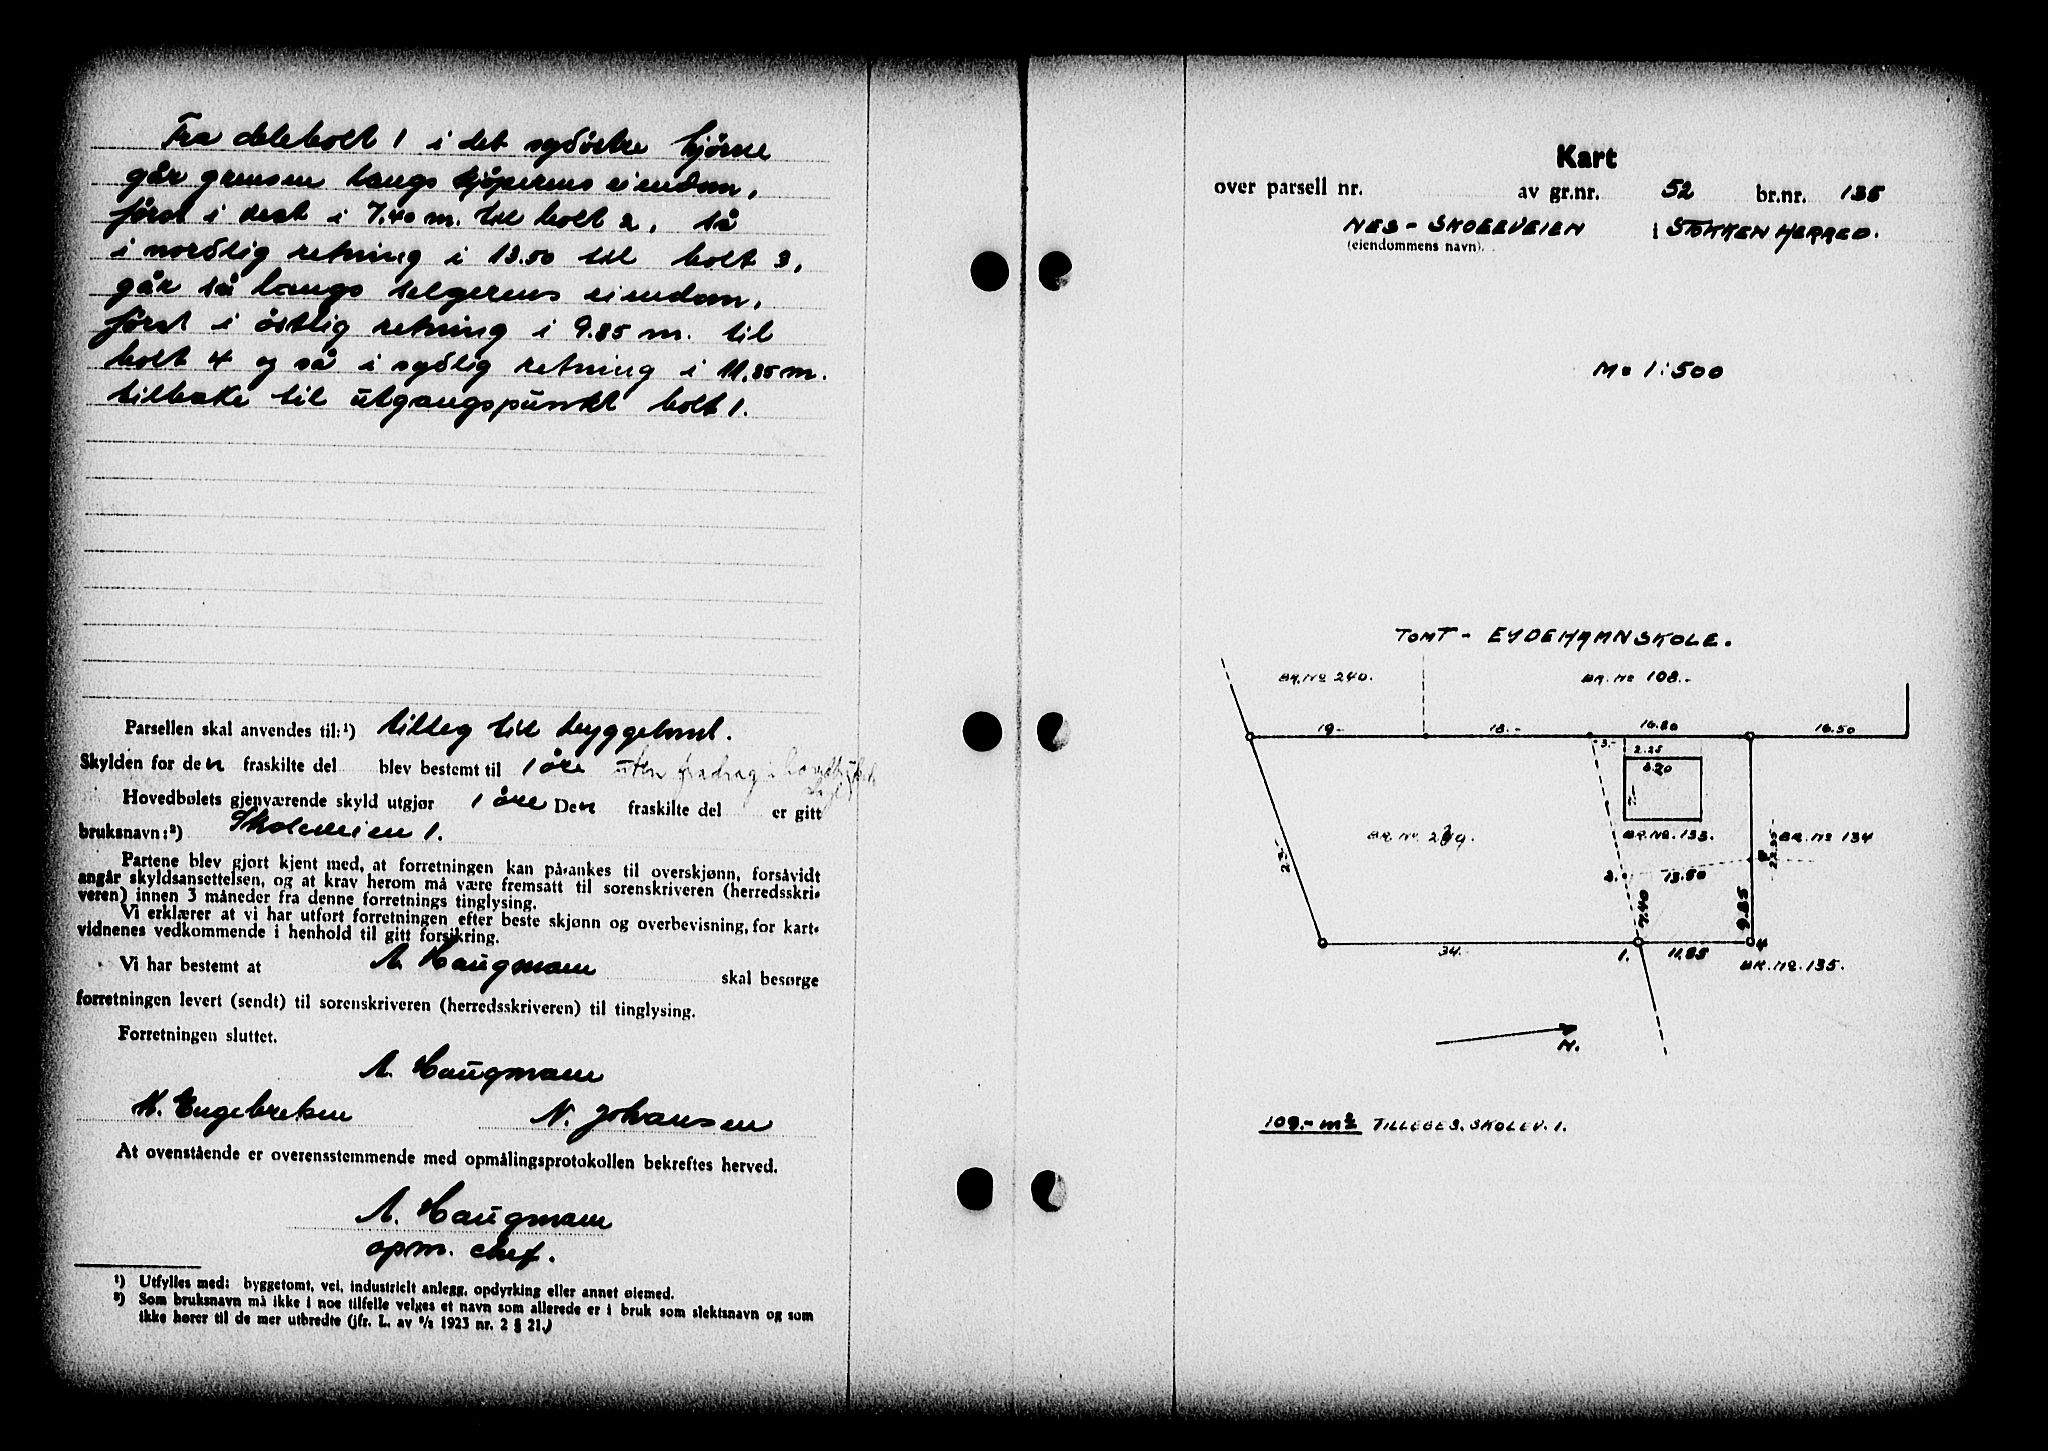 Fra delebolt 1 i det sydöstre hjörne
går grensen langs kjöperens eiendom,
först i vest i 7.40 m. til bolt 2, så
i nordlig retning i 13.50 til bolt 3,
går så langs selgerens eiendom,
först i östlig retning i 9.85 m. til
bolt 4 og så i sydlig retning i 11,85 m.
tilbake til utgangspunkt bolt 1.
Parsellen skal anvendes til:¹) tilleg til byggetomt.
Skylden for den fraskilte del blev bestemt til 1 øre uten fradrag i
Hovedbølets gjenværende skyld utgjør 1 øre Den fraskilte del er gitt
bruksnavn:²) Skoleveien 1.
Partene blev gjort kjent med, at forretningen kan på-ankes til overskjønn, forsåvidt
angår skyldsansettelsen, og at krav herom må være fremsatt til sorenskriveren (herredsskri-
veren) innen 3 måneder fra denne forretnings tinglysing.
Vi erklærer at vi har utført forretningen efter beste skjønn og overbevisning, for kart-
vidnenes vedkommende i henhold til gitt forsikring.
Vi har bestemt at A. Haugmann skal besørge
forretningen levert (sendt) til sorenskriveren (herredsskriveren) til tinglysing.
Forretningen sluttet.
A. Haugmann
K. Engebretsen N. Johansen
At ovenstående er overensstemmende med opmålingsprotokollen bekreftes herved.
A. Haugmann
opm. chef.
¹) Utfylles med: byggetomt, vei, industrielt anlegg, opdyrking eller annet øiemed.
²) Som bruksnavn må ikke i noe tilfelle velges et navn som allerede er i bruk som slektsnavn og som
ikke hører til de mer utbredte (jfr. L. av 9/2 1923 nr. 2 § 21.)
Kart
over parsell nr. av gr.nr. 52 br.nr. 135
NES - SKOLEVEIEN i STOKKEN HERRED.
(eiendommens navn).
M= 1:500
TOMT - EYDEHAMN SKOLE.
BR. No 240. BR. No 108.-
19- 18.- 16.80 16.50
3.- 2.25
8.20
7.-
BR. No. 249. BR. No. 133. BR. No 134
27.- 22.35
2. 13.50 3
7.40 9.85
34. 1. 11.85 4
BR. No. 135.
N.
109.- m² TILLEGG S. SKOLEV. 1.